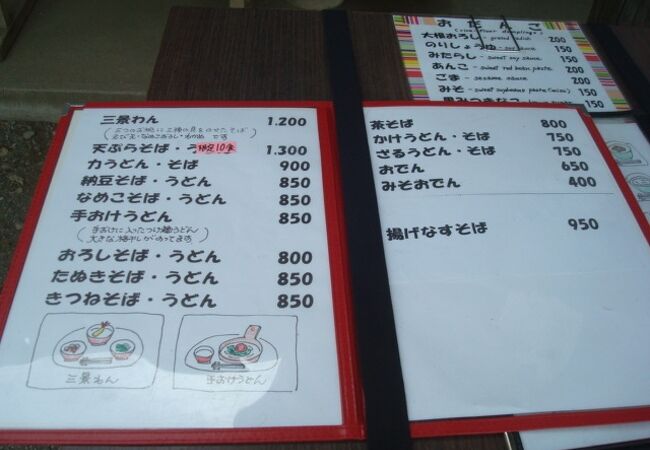 おだんご
(rice flour dumplings)
大根おろし - grated radish 200
のりしょうゆ - soy sauce 150
みたらし - sweet soy sauce 150
あんこ - sweet red bean paste 200
ごま - sesame sauce 200
みそ - sweet soybeans paste (miso) 150
黒みつきなこ 150
三景わん 1.200
天ぷらそば・う 限定10食 1.300
力うどん・そば 900
納豆そば・うどん 850
なめこそば・うどん 850
手おけうどん 850
(手おけに入ったつけ麺うどん
大きな梅干しがのってます)
おろしそば・うどん 800
たぬきそば・うどん 850
きつねそば・うどん 850
三景わん
手おけうどん
茶そば 800
かけうどん・そば 750
ざるうどん・そば 750
おでん 650
みそおでん 400
揚げなすそば 950